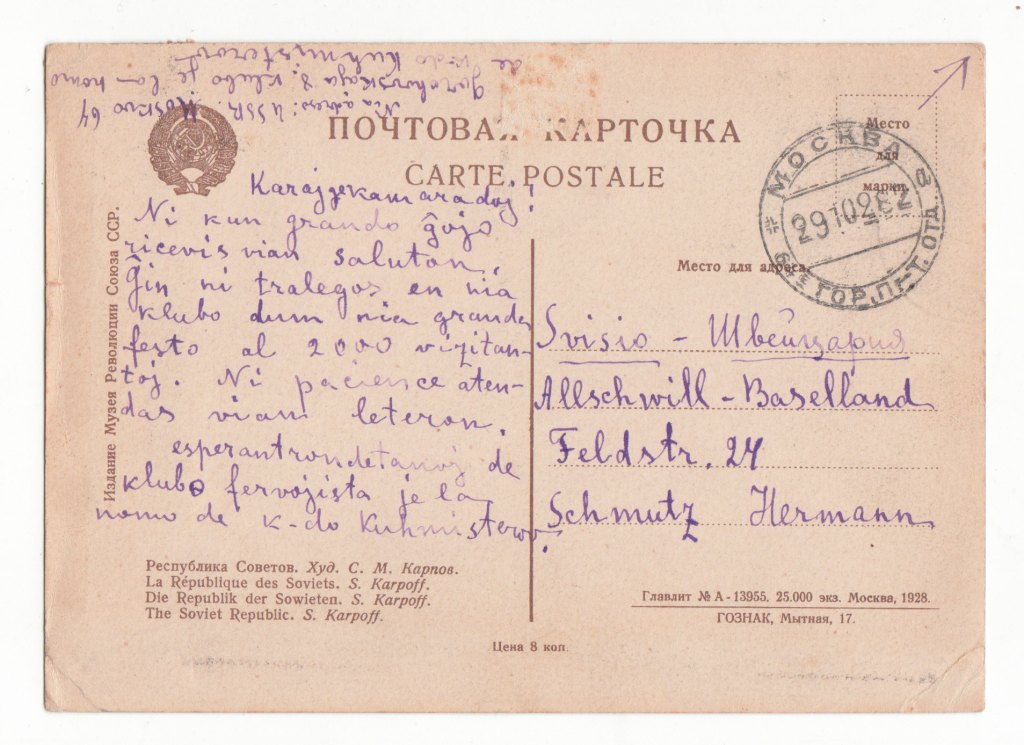 Nia adreso: USSR. Moskvo 64
gorohovskaja 8. klubo je la nomo
de k-do Kuhmisterov
ПОЧТОВАЯ КАРТОЧКА
CARTE POSTALE
Место
для
марки.
МОСКВА
29 10 28
ГОР. П.-Т. ОТД.
Издание Музея Революции Союза ССР.
Karaj gekamaradoj!
Ni kun grando ĝojo
ricevis vian saluton.
Ĝin ni tralegos en nia
klubo dum nia granda
festo al 2000 vizitan-
toj. Ni pacience aten-
das vian leteron.
esperantrondetanoj de
klubo fervojista je la
nomo de k-do Kuhmisterov.
Место для адреса.
Svisio - Швейцария
Allschwill - Baselland
Feldstr. 24
Schmutz Hermann
Республика Советов. Худ. С. М. Карпов.
La République des Soviets. S. Karpoff.
Die Republik der Sowieten. S. Karpoff.
The Soviet Republic. S. Karpoff.
Главлит № А - 13955. 25.000 экз. Москва, 1928.
ГОЗНАК, Мытная, 17.
Цена 8 коп.